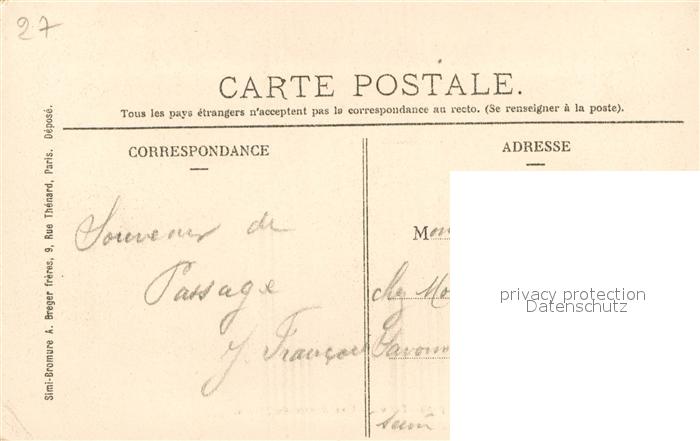 27
CARTE POSTALE.
Tous les pays étrangers n'acceptent pas la correspondance au recto. (Se renseigner à la poste).
Simi-Bromure A. Breger frères, 9, Rue Thénard, Paris. Déposé.
CORRESPONDANCE
Souvenir de
Passage
J. François
ADRESSE
Mon
chez Mo
privacy protection
Datenschutz